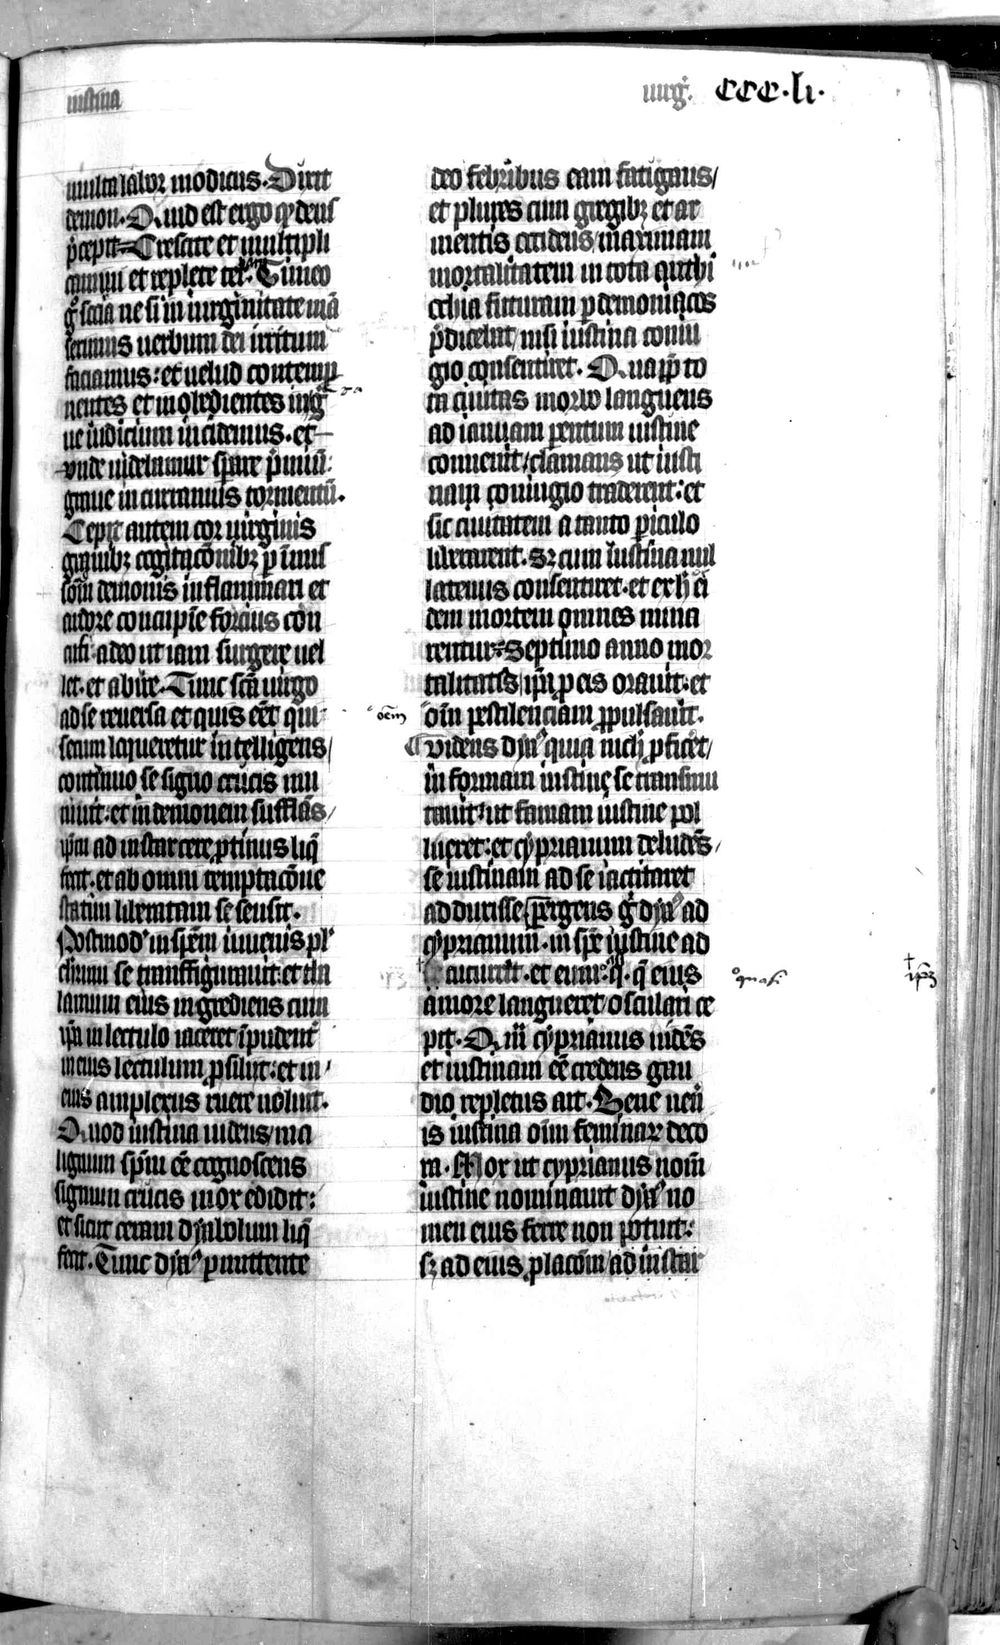 iustina
uirg̃. CCC·li·
multa labor modicus. Dixit
demon. Quid est ergo qḍ deus
p̃cepit Crescite et multipli
camini et replete ter̃. Timeo
g° socia ne si in uirginitate mã
serimus uerbum dei irritum
faciamus: et uelud contemp
nentes et inobedientes in g̃
ue iudicium incidemus. et
vnde uidebamur sperare p̃miũ:
graue incurramus tormentũ.
Cepit autem cor uirginis
grauibꝫ cogitacõnibꝫ p̱ imus
sõm demonis inflammari et
ardore concupĩe forcius con
cuti adeo ut iam surgere uel
let. et abire. Tunc scã uirgo
ad se reuersa et quis eẽt qui
secum loqueretur intelligens/
continuo se signo crucis mu
niuit. et in demonem sufflãs/
ip̃m ad instar cere ꝓtinus liq̃
fecit. et ab omni temptacõne
statim liberatam se sensit.
Postmodꝰ in sp̃em iuuenis pl'
cherimi se transfigurauit. et tha
lamum eius ingrediens cum
ip̃a in lectulo iaceret ip̃udent̃
in eius lectulum ꝓsiluit: et in/
eius amplexus ruere uoluit.
Quod iustina uidens/ma
lignum sp̃m eẽ cognoscens
signum crucis mox edidit:
et sicut ceram dyabolum liq̃
fecit. Tunc dyaꝰ p̱mittente
deo febribus eam fatigans/
et plures cum gregibꝫ et ar
mentis occidens/maximam
mortalitatem in tota anthi
ochia futuram p̱ demoniacos
p̃dicebat/nisi iustina coniu
gio consentiret. Quap̱p̃ to
ta ciuitas morbo languens
ad ianuam parentum iustine
conuenit/clamans ut iusti
nam coniugio traderent: et
sic ciuitatem a tanto periculo
liberarent. Sꝫ cum iustina nul
latenus consentiret. et ex h̃ ei
dem mortem omnes mina
rentur Septimo anno mor
talitatis/ip̃a p̱ eis orauit. et
oẽm
oĩm pestilenciam ꝓpulsauit.
Videns dyaꝰ quia nichil ꝓficẽt/
in formam iustine se transmu
tauit ut famam iustine pol
lueret: et cyprianum deludẽs/
se iustinam ad se iactitaret
adduxisse. Pergens g̃ dyaꝰ ad
cyprianum. in sp̃e iustine ad
cucurrit. et eum: q̃. q̃ eius
°quasi
†ip̃ꝫ
amore langueret/osculari ce
pit. Qm̃ cyprianus uidẽs
et iustinam eẽ credens gau
dio repletus ait. Bene uen̄
is iustina oĩm feminarꝫ deco
ra. Mox ut cyprianus nom̃
iustine nominauit dyaꝰ no
men eius ferre non potuit:
sꝫ ad eius ꝓlacõm ad instar